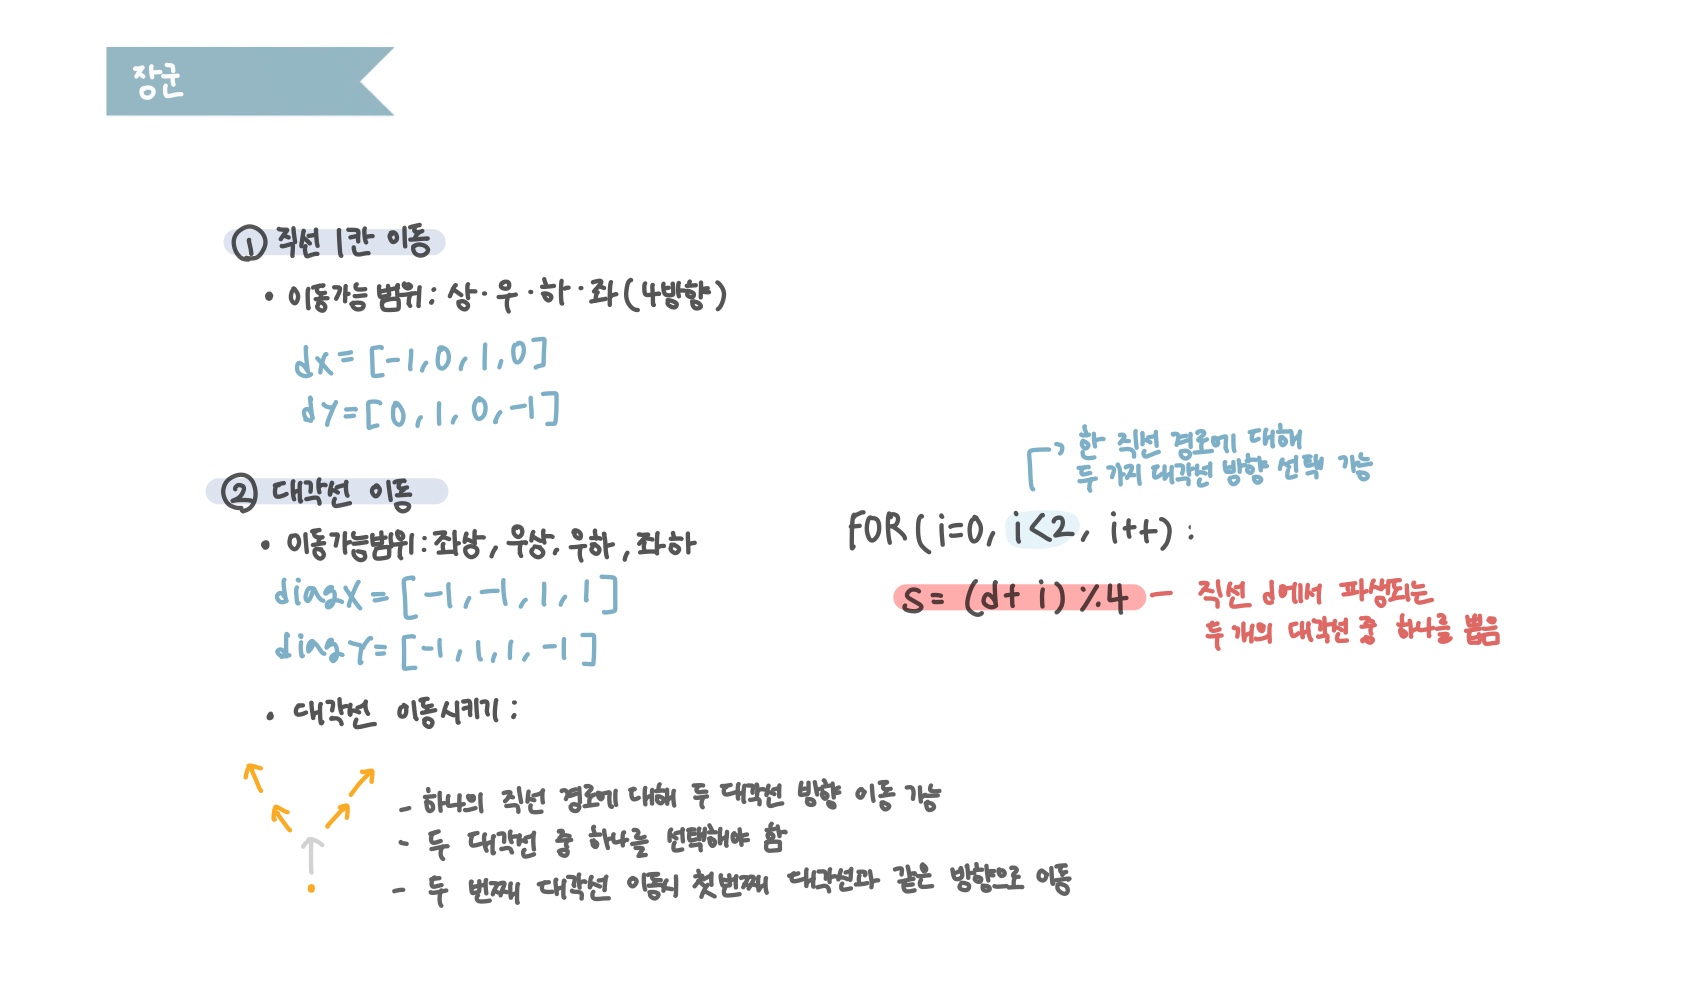 장군
① 직선 1칸 이동
• 이동가능 범위 : 상 · 우 · 하 · 좌 (4방향)
dx = [-1, 0, 1, 0]
dy = [0, 1, 0, -1]
② 대각선 이동
• 이동가능범위 : 좌상, 우상, 우하, 좌하
diagX = [-1, -1, 1, 1]
diagY = [-1, 1, 1, -1]
• 대각선 이동시키기 :
- 하나의 직선 경로에 대해 두 대각선 방향 이동 가능
- 두 대각선 중 하나를 선택해야 함
- 두 번째 대각선 이동시 첫번째 대각선과 같은 방향으로 이동
한 직선 경로에 대해
두 가지 대각선 방향 선택 가능
FOR ( i=0, i<2, i++) :
s = (d+ i) % 4 - 직선 d에서 파생되는
두 개의 대각선 중 하나를 뽑음